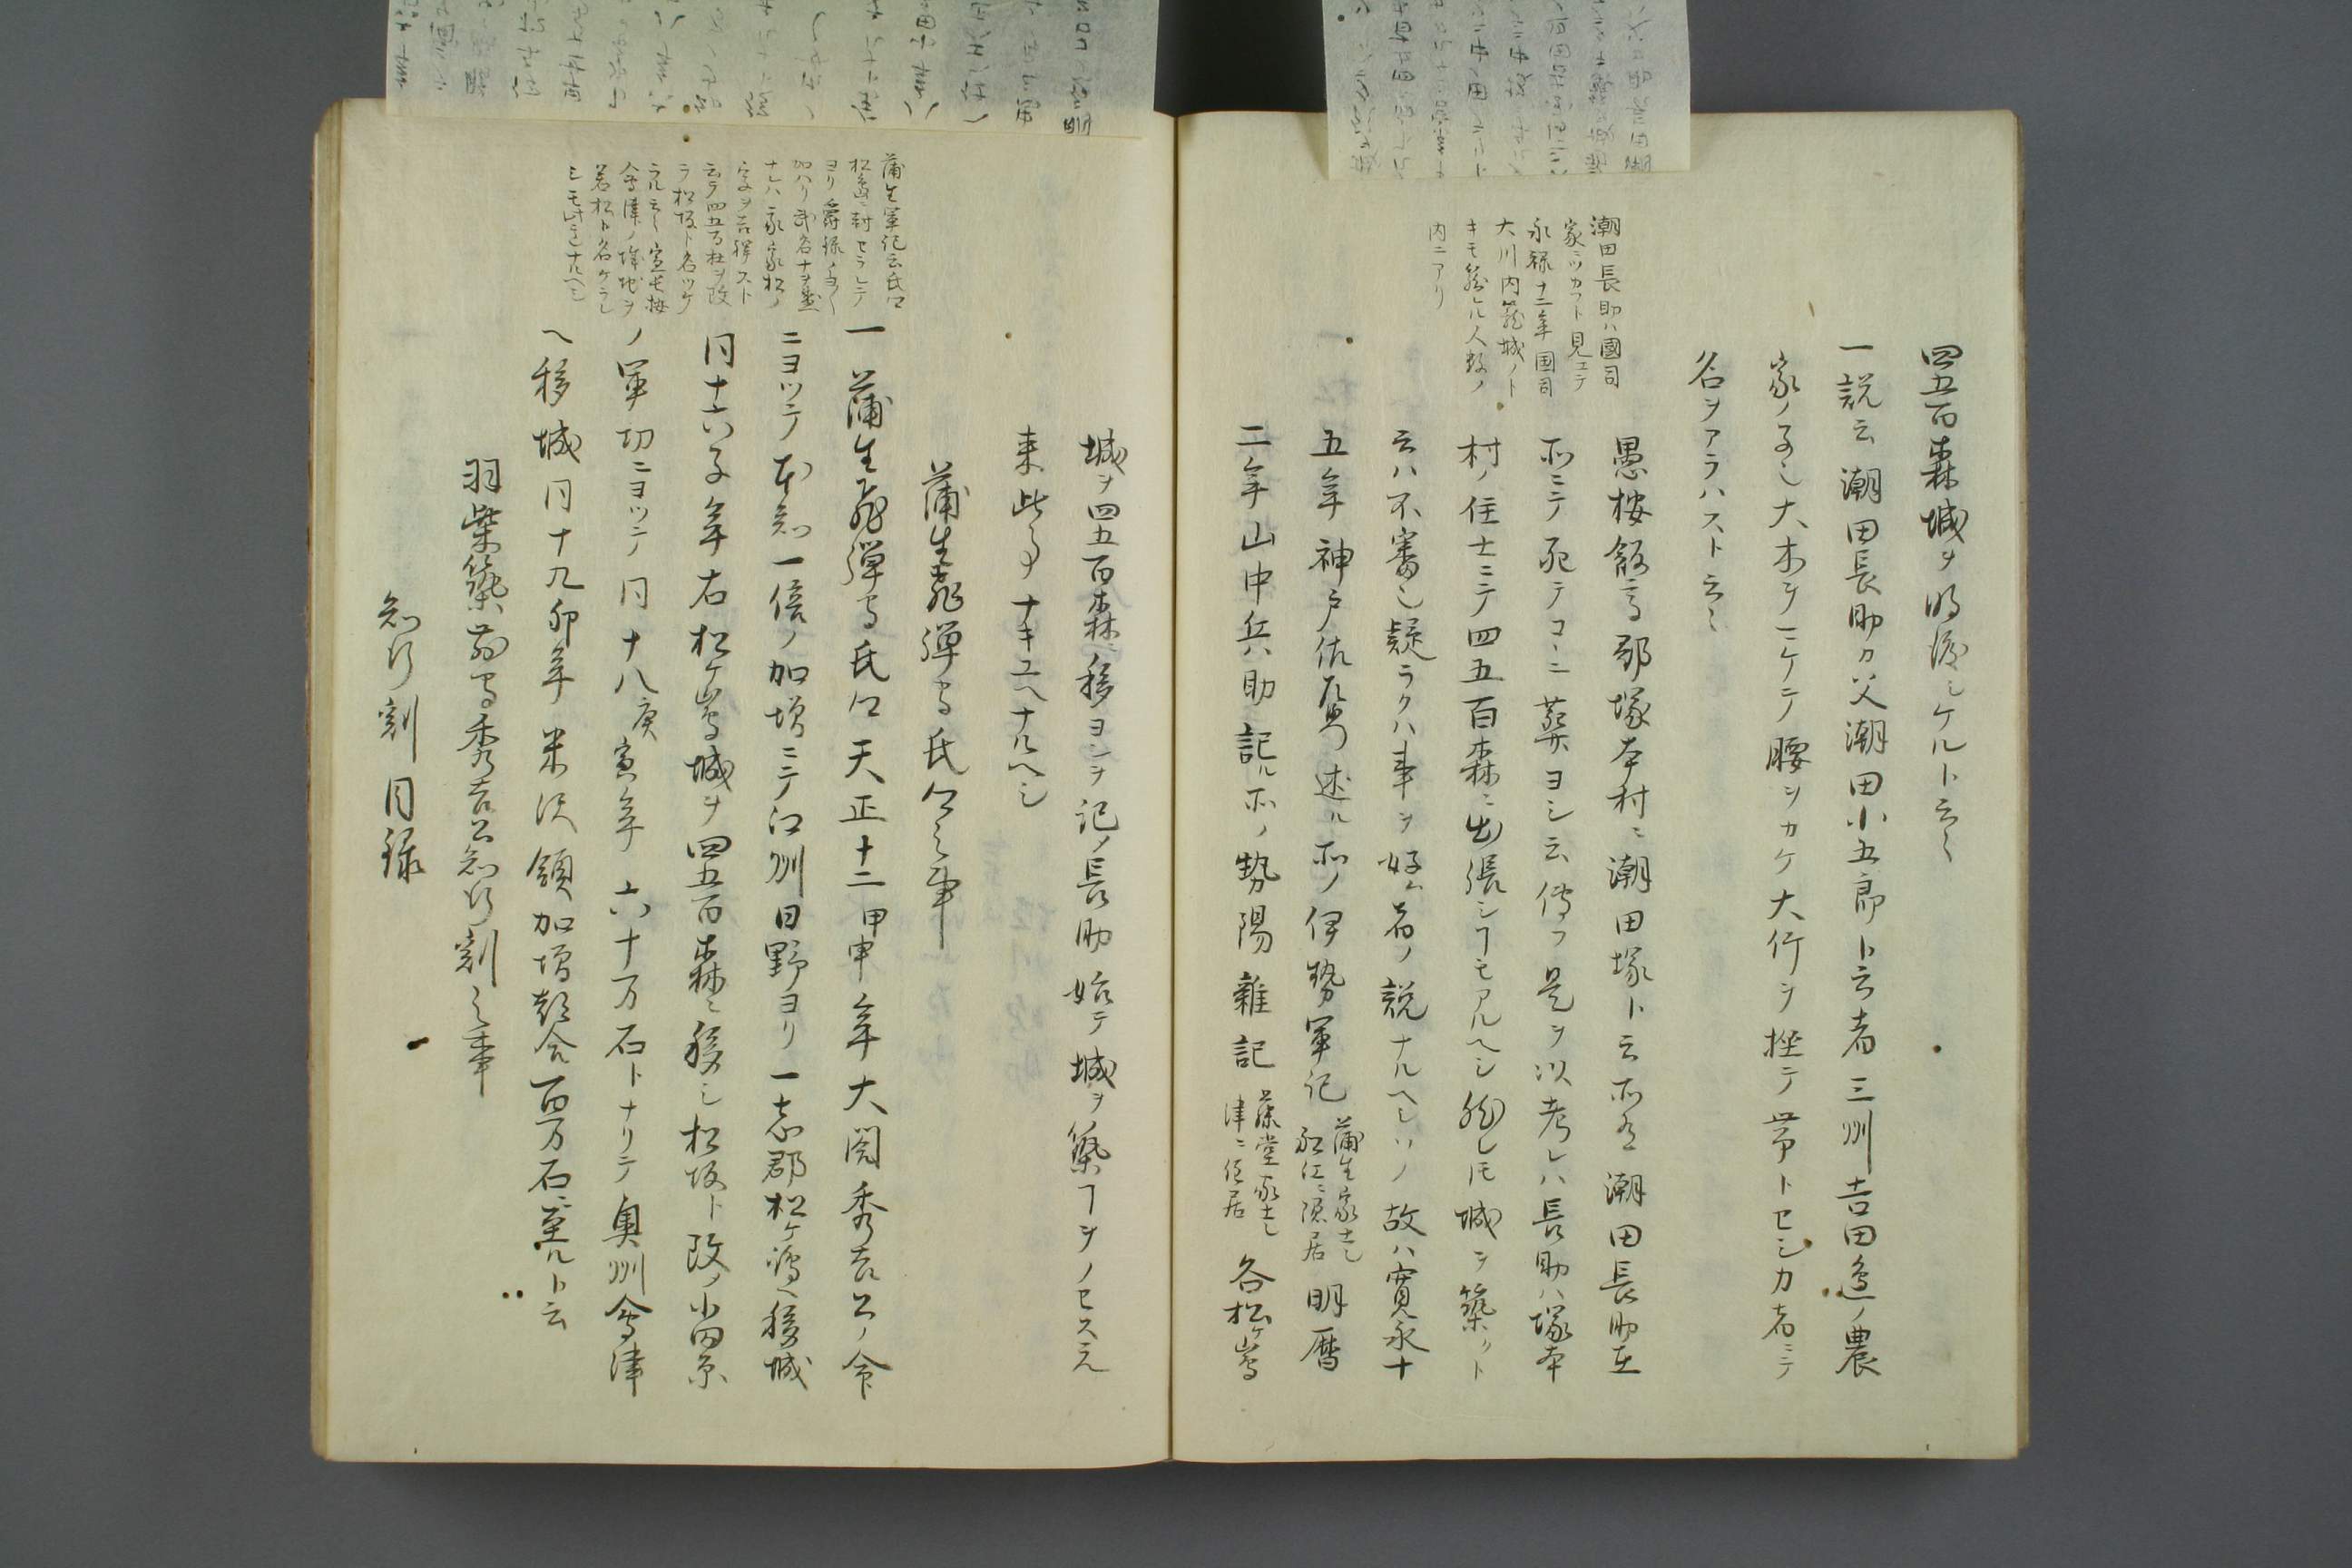 四五百森城ヲ明渡シケルト云々
一説云潮田長助カ父潮田小五郎ト云者三州吉田邉ノ農
家ノ子也大木ヲ二ケテ腰ヲカケ大竹ヲ挫テ帯トセシカ者ニテ
名ヲアラハスト云々
潮田長助ハ國司
家ニツカフト見エテ
永禄十二年国司
大川内籠城ノト
キモ籠レル人数ノ
内ニアリ
愚按飯高郡塚本村ニ潮田塚ト云所有潮田長助在
所ニテ死テコヽニ葬ヨシ云傳フ是ヲ以考レハ長助ハ塚本
村ノ住士ニテ四五百森ニ出張シヿモアルヘシ然レ𪜈城ヲ築クト
云ハ不審也疑ラクハ事ヲ好ム者ノ説ナルヘシソノ故ハ寛永十
五年神戸佐 述ル所ノ伊勢軍記
蒲生家士也
隠居
明暦
二年山中兵助記ル所ノ勢陽雜記
藤堂家士也
津ニ住居
各松ケ嶌
城ヲ四五百森ニ移ヨシヲ記ノ長助始テ城ヲ築ヿヲノセス元
来此事ナキユヘナルヘシ
蒲生飛彈守氏郷之事
蒲生軍記云氏郷
松嶋ニ封セラレテ
ヨリ爵禄ノ
加ハリ武名ナヲ盛
ナレハ我家松ノ
字ヲ吉祥スト
云テ四五百杜ヲ改
ラ松坂ト名ツケ
ラル云々宣長按
會津ノ城地ヲ
若松ト名ケラレ
シモ此意ナルヘシ
一蒲生飛彈守氏郷天正十二甲申年大閤秀吉公ノ令
ニヨツテ本知一倍ノ加増ニテ江州日野ヨリ一志郡松ケ嶋ヘ移城
同十六子年右松ケ嶌城ヲ四五百森ニ移シ松坂ト改ノ小田原
ノ軍切ニヨツテ同十八庚寅年六十万石トナリテ奥州會津
ヘ移城同十九卯年米沢領加増都合百万石ニ至ルト云
羽柴築前守秀吉公知行割之事
知行割目録